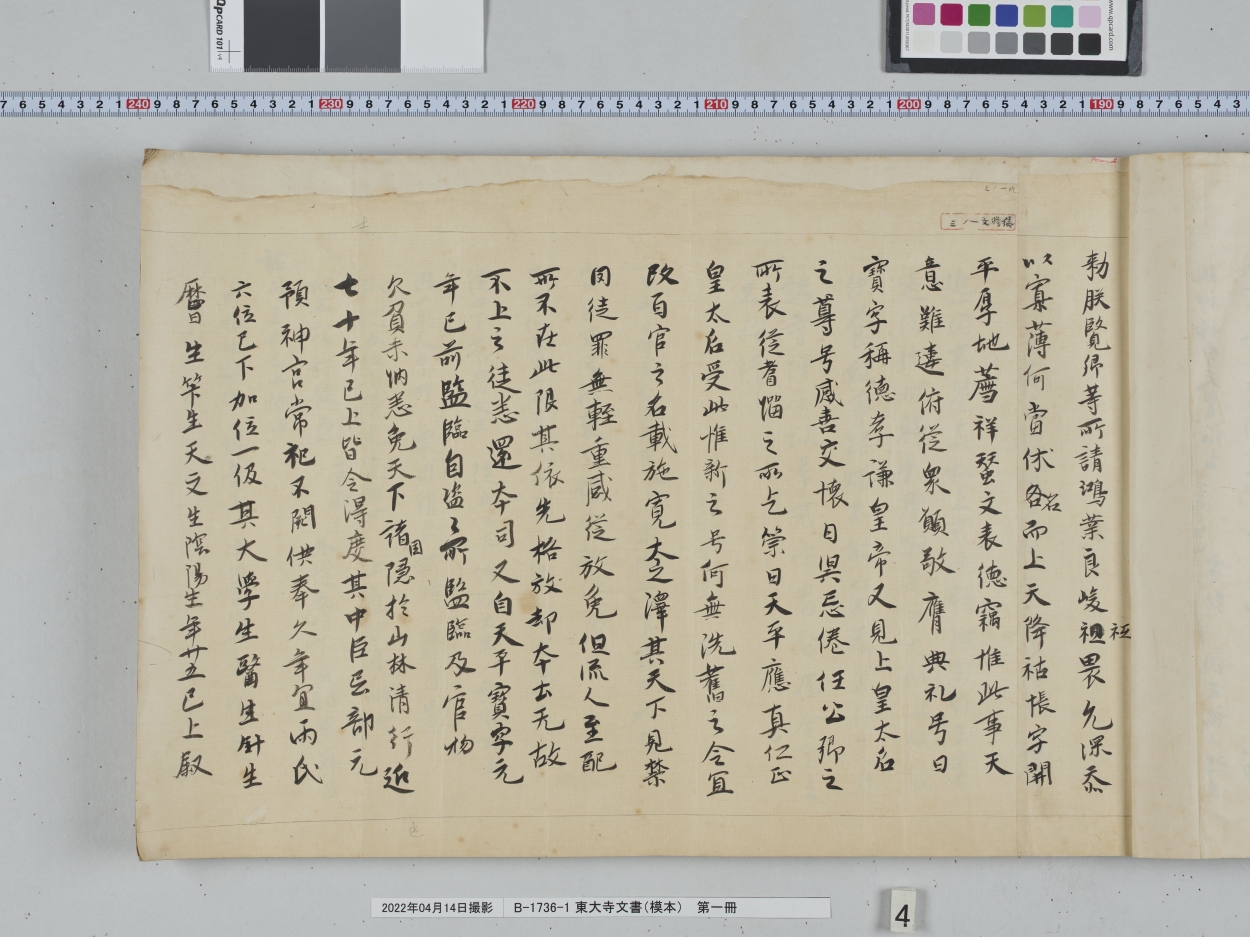 勅朕覧卿等所請鴻業良峻祖祗畏允深忝
以寡薄何當休名而上天降祜帳字開
平厚地薦祥蚕文表徳竊惟此事天
意難違俯従衆願敬膺典礼号曰
寶字稱徳孝謙皇帝又見上皇太后
之尊号感喜交懐日異忌倦任公卿之
所表従耆緇之所乞策曰天平應真仁正
皇太后受此惟新之号何無洗舊之令宜
改百官之名載施寛大之澤其天下見禁
囚徒罪無軽重咸従放免但流人至配
所不在此限其依先格放却本土无故
不上之徒悉還本司又自天平寳字元
年已前監臨自盗々所監臨及官物
欠負未納悉免天下諸国隠於山林清行近
七十年已上皆令得度其中臣忌部元
預神宮常祀不闕供奉久年宜両氏
六位已下加位一級其大学生醫生針生
暦生笇生天文生陰陽生年廿五已上叙
三ノ一文聰稿
七
2022年04月14日撮影 B-1736-1 東大寺文書(模本) 第一冊
4
QPCARD 101 v4
www.qpcard.com
7 6 5 4 3 2 1 240 9 8 7 6 5 4 3 2 1 230 9 8 7 6 5 4 3 2 1 220 9 8 7 6 5 4 3 2 1 210 9 8 7 6 5 4 3 2 1 200 9 8 7 6 5 4 3 2 1 190 9 8 7 6 5 4 3